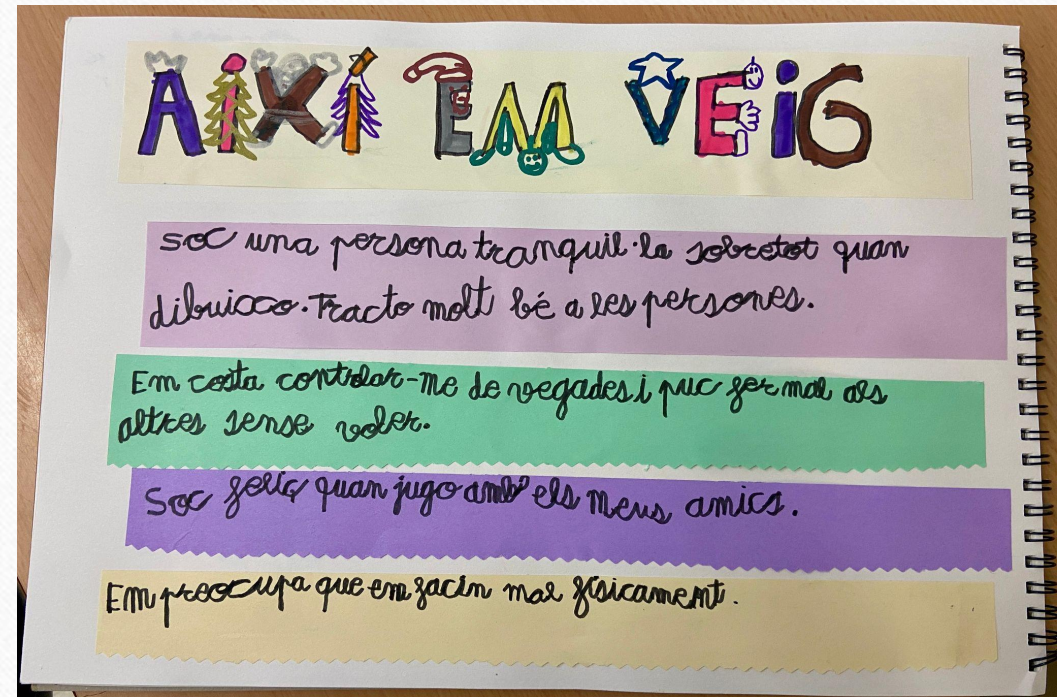 AIXÍ EM VEIG
Soc una persona tranquil·la sobretot quan
dibuixo. Tracto molt bé a les persones.
Em costa controlar-me de vegades i puc fer mal als
altres sense voler.
Soc feliç quan jugo amb els meus amics.
Em preocupa que em facin mal físicament.